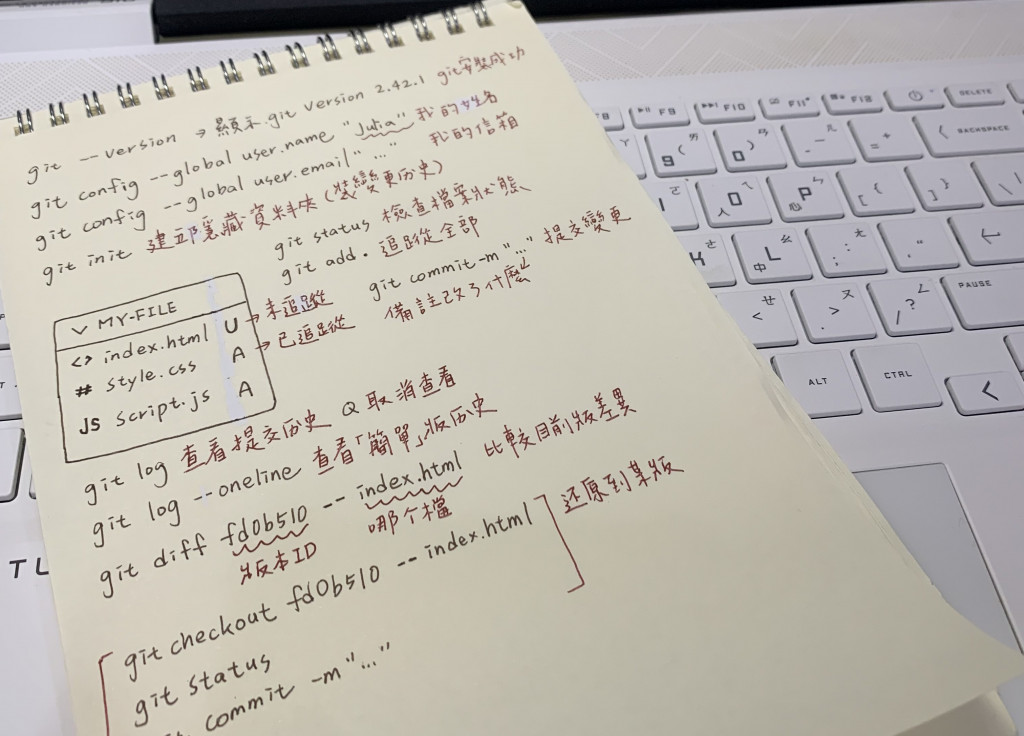 git --version → 顯示 git version 2.42.1 git安裝成功
git config --global user.name "Julia" 我的姓名
git config --global user.email "..." 我的信箱
git init 建立隱藏資料夾(裝變更历史)
git status 檢查檔案狀態
git add. 追蹤全部
git commit -m "..." 提交變更
備註改了什麼
MY-FILE
<> index.html U → 未追蹤
# style.css A → 已追蹤
JS script.js A
git log 查看提交历史 Q 取消查看
git log --oneline 查看「簡單」版历史
git diff fd0b510 -- index.html 比較目前版差異
版本ID 哪个檔
git checkout fd0b510 -- index.html 还原到某版
git status
commit -m "..."
F9
F10
F11
F12
DELETE
9 ㄞ
0 ) ㄢ
- ㄦ
+ =
BACKSPACE
O ㄟ 人
P ㄣ 心
{ [
} ]
\ |
K ㄜ
L ㄠ 中
: ; ㄤ
" '
PAUSE
< ㄝ
> . ㄡ
? / ㄥ
ALT
CTRL
TL